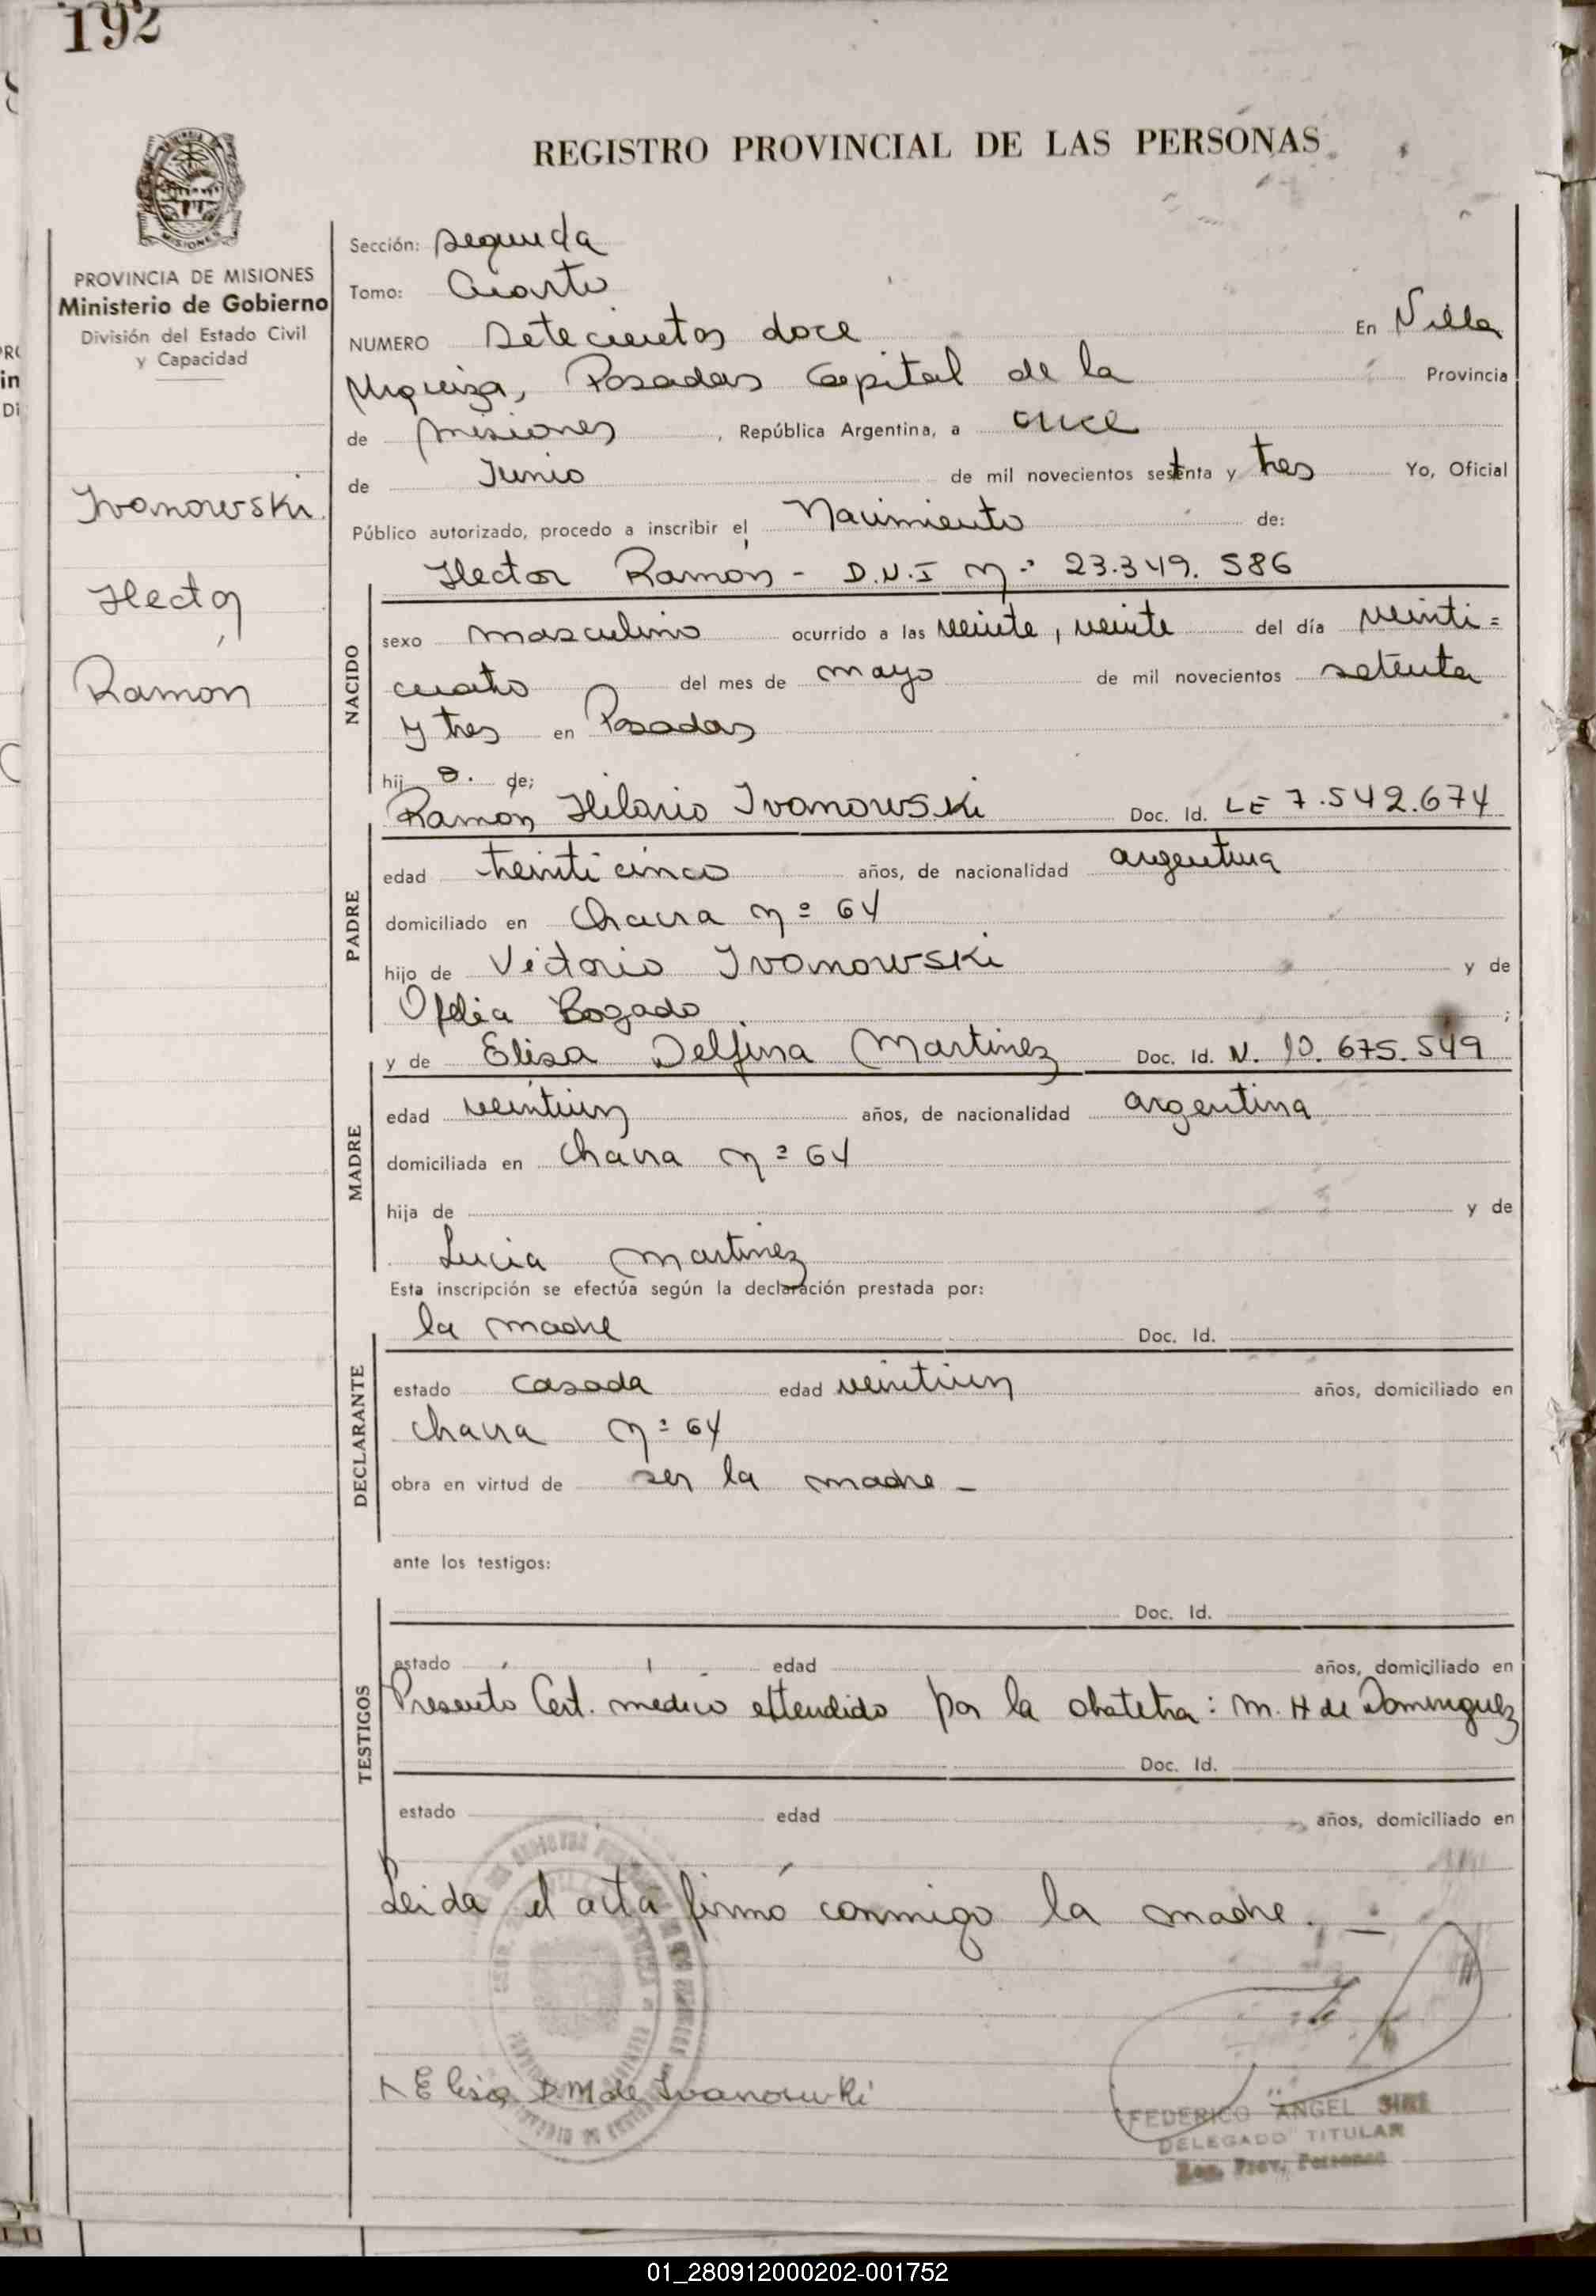 192
REGISTRO PROVINCIAL DE LAS PERSONAS
MISIONES
PROVINCIA DE MISIONES
Ministerio de Gobierno
División del Estado Civil
y Capacidad
Ivanowski
Hector
Ramón
Sección: segunda
Tomo: Cuarto
NUMERO Setecientos doce En Villa
Urquiza, Posadas Capital de la Provincia
de Misiones, República Argentina, a once
de Junio de mil novecientos setenta y tres Yo, Oficial
Público autorizado, procedo a inscribir el Nacimiento de:
Hector Ramón - D.N.I nº 23.349.586
NACIDO
sexo masculino ocurrido a las veinte, veinte del día veinti=
cuatro del mes de mayo de mil novecientos setenta
y tres en Posadas
hij o. de;
Ramón Hilario Ivanowski Doc. Id. LE 7.542.674
PADRE
edad treinticinco años, de nacionalidad argentina
domiciliado en Chacra nº 64
hijo de Victorio Ivanowski y de
Ofelia Bogado;
y de Elisa Delfina Martinez Doc. Id. N. 10.675.549
MADRE
edad veintiun años, de nacionalidad argentina
domiciliada en Chacra nº 64
hija de y de
Lucia Martinez
Esta inscripción se efectúa según la declaración prestada por:
la madre Doc. Id.
DECLARANTE
estado casada edad veintiun años, domiciliado en
chacra nº 64
obra en virtud de ser la madre -
ante los testigos:
Doc. Id.
TESTIGOS
estado edad años, domiciliado en
Presento Cert. medico extendido por la obstetra: M. H de Dominguez
Doc. Id.
estado edad años, domiciliado en
Leida el acta firmó conmigo la madre. -
Elisa D M de Ivanowski
FEDERICO ANGEL SIRI
DELEGADO TITULAR
Reg. Prov. Personas
01_280912000202-001752